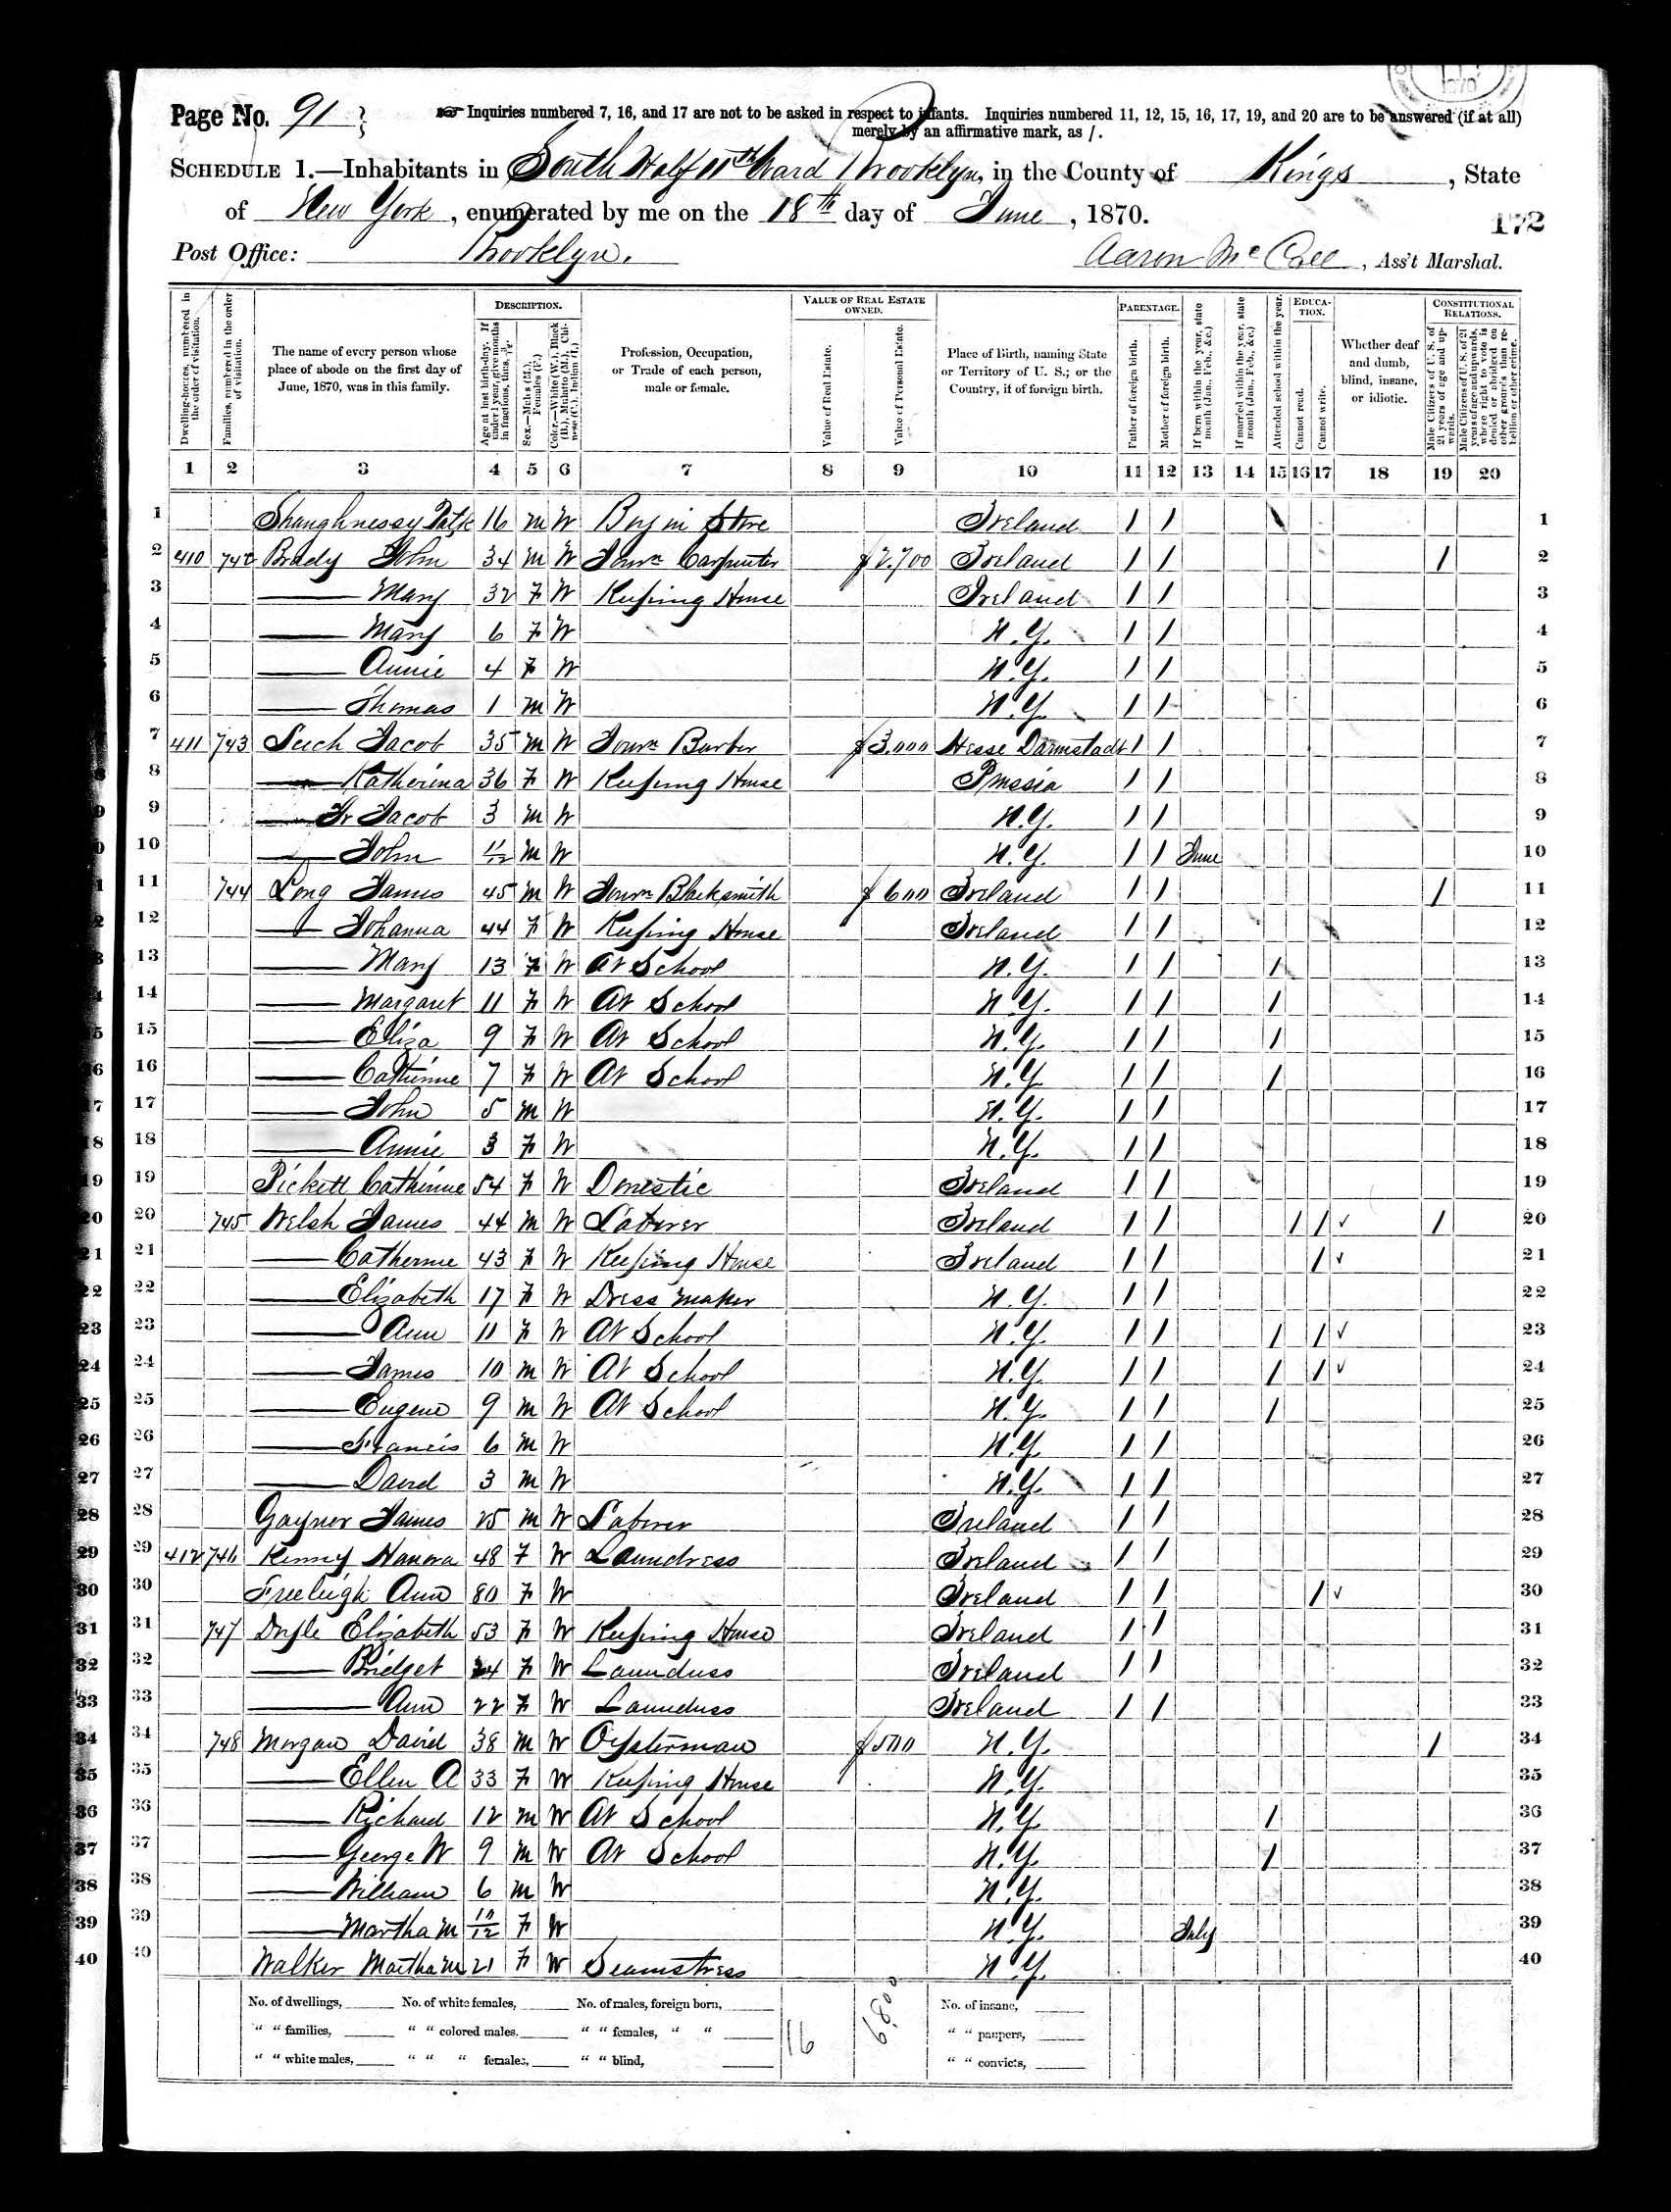 Page No. 91
☞ Inquiries numbered 7, 16, and 17 are not to be asked in respect to infants. Inquiries numbered 11, 12, 15, 16, 17, 19, and 20 are to be answered (if at all)
merely by an affirmative mark, as /.
SCHEDULE 1.—Inhabitants in South Half 11th Ward Brooklyn, in the County of Kings, State
of New York, enumerated by me on the 18th day of June, 1870.
172
Post Office: Brooklyn. Aaron Mc , Ass't Marshal.
Dwelling-houses, numbered in the order of visitation.
Families, numbered in the order of visitation.
The name of every person whose place of abode on the first day of June, 1870, was in this family.
DESCRIPTION.
Age at last birth-day. If under 1 year, give months in fractions, thus, 3/12.
Sex.—Males (M.), Females (F.)
Color.—White (W.), Black (B.), Mulatto (M.), Chinese (C.), Indian (I.)
Profession, Occupation, or Trade of each person, male or female.
VALUE OF REAL ESTATE OWNED.
Value of Real Estate.
Value of Personal Estate.
Place of Birth, naming State or Territory of U. S.; or the Country, if of foreign birth.
PARENTAGE.
Father of foreign birth.
Mother of foreign birth.
If born within the year, state month (Jan., Feb., &c.)
If married within the year, state month (Jan., Feb., &c.)
Attended school within the year.
EDUCATION.
Cannot read.
Cannot write.
Whether deaf and dumb, blind, insane, or idiotic.
CONSTITUTIONAL RELATIONS.
Male Citizens of U. S. of 21 years of age and upwards.
Male Citizens of U. S. of 21 years of age and upwards, where right to vote is denied or abridged on other grounds than rebellion or other crime.
1 2 3 4 5 6 7 8 9 10 11 12 13 14 15 16 17 18 19 20
1 Shaughnessy Patk 16 M W Boy in Store Ireland / / \ 1
2 410 742 Brady John 34 M W Journ Carpenter $2.700 Ireland / / / 2
3 — Mary 32 F W Keeping House Ireland / / 3
4 — Mary 6 F W N.Y. / / 4
5 — Annie 4 F W N.Y. / / 5
6 — Thomas 1 M W N.Y. / / 6
7 411 743 Jacob 35 M W Journ Barber $3.000 Hesse Darmstadt / / 7
8 — Katherina 36 F W Keeping House Prussia / / 8
9 — Jr Jacob 3 M W N.Y. / / 9
10 — John 11/12 M W N.Y. / / June 10
11 744 Long James 45 M W Journ Blacksmith $600 Ireland / / / 11
12 — Johanna 44 F W Keeping House Ireland / / 12
13 — Mary 13 F W At School N.Y. / / / 13
14 — Margaret 11 F W At School N.Y. / / / 14
15 — Eliza 9 F W At School N.Y. / / / 15
16 — Catherine 7 F W At School N.Y. / / / 16
17 — John 5 M W N.Y. / / 17
18 — Annie 3 F W N.Y. / / 18
19 Pickett Catherine 54 F W Domestic Ireland / / 19
20 745 Welsh James 44 M W Laborer Ireland / / / / ✓ / 20
21 — Catherine 43 F W Keeping House Ireland / / / ✓ 21
22 — Elizabeth 17 F W Dress Maker N.Y. / / 22
23 — Ann 11 F W At School N.Y. / / / / ✓ 23
24 — James 10 M W At School N.Y. / / / / ✓ 24
25 — Eugene 9 M W At School N.Y. / / / 25
26 — Francis 6 M W N.Y. / / 26
27 — David 3 M W N.Y. / / 27
28 Gaynor James 25 M W Laborer Ireland / / 28
29 412 746 Kenny Hanora 48 F W Laundress Ireland / / 29
30 Freeleigh Ann 80 F W Ireland / / / ✓ 30
31 747 Doyle Elizabeth 53 F W Keeping House Ireland / / 31
32 — Bridget 24 F W Laundress Ireland / / 32
33 — Ann 22 F W Laundress Ireland / / 33
34 748 Morgan David 38 M W Oysterman $500 N.Y. / 34
35 — Ellen A 33 F W Keeping House N.Y. 35
36 — Richard 12 M W At School N.Y. / 36
37 — George W 9 M W At School N.Y. / 37
38 — William 6 M W N.Y. 38
39 — Martha M 10/12 F W N.Y. July 39
40 Walker Martha M 21 F W Seamstress N.Y. 40
No. of dwellings, No. of white females, No. of males, foreign born, No. of insane,
" " families, " " colored males, " " females, " " " " paupers,
" " white males, " " " females, " " blind, " " convicts,
16 6.800